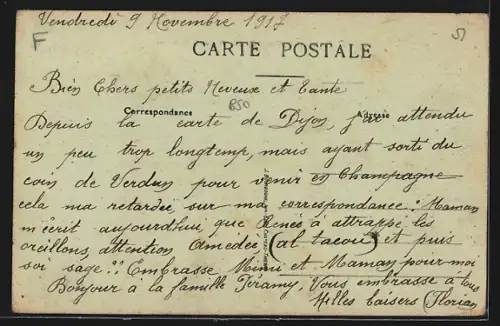 Vendredi 9 Novembre 1917
F
51
CARTE POSTALE
Bien Chers petits Neveux et Tante
Correspondance
850
Adresse
Depuis la carte de Dijon, j'ai attendu
un peu trop longtemp, mais ayant sorti du
coin de Verdun pour venir en Champagne
cela ma retardée sur ma correspondance. Maman
m'écrit aujourdhui que Renée à attrappé les
oreillons, attention Amedée (al tacou) et puis
soi sage. Embrasse Mimi et Maman pour moi
Bonjour à la famille Vous embrasse à tous
Milles baisers Florian